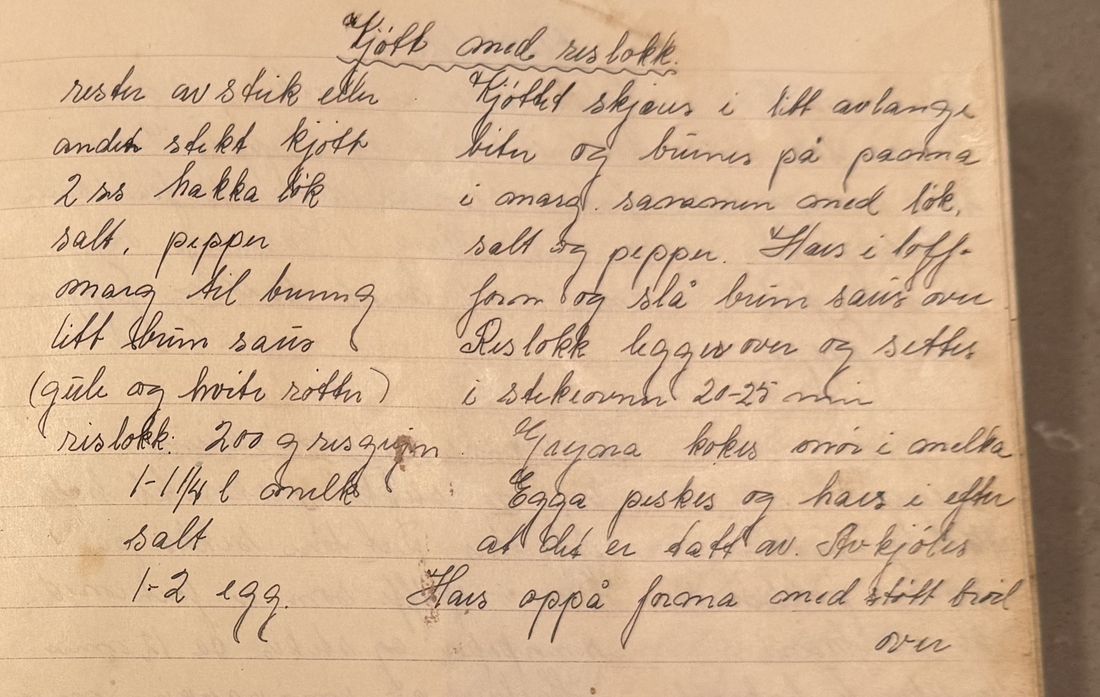 Kjøtt med reslokk.
rester av steik eller
andet stekt kjøtt
2 ss hakka løk
salt, pepper
marg til bruning
litt brun saus
(gule og hvite røtter)
rislokk: 200 g resgryn
1-1 1/4 l melk
salt
1-2 egg.
Kjøttet skjæres i litt avlange
biter og brunes på panna
i marg. sammen med løk,
salt og pepper. Haes i
form og slå brun saus over
Reslokk legges over og settes
i stekeovnen 20-25 min
Gryna kokes møre i melka
Egga piskes og haes i efter
at det er tatt av. Avkjøles
Haes oppå forma med støtt
over